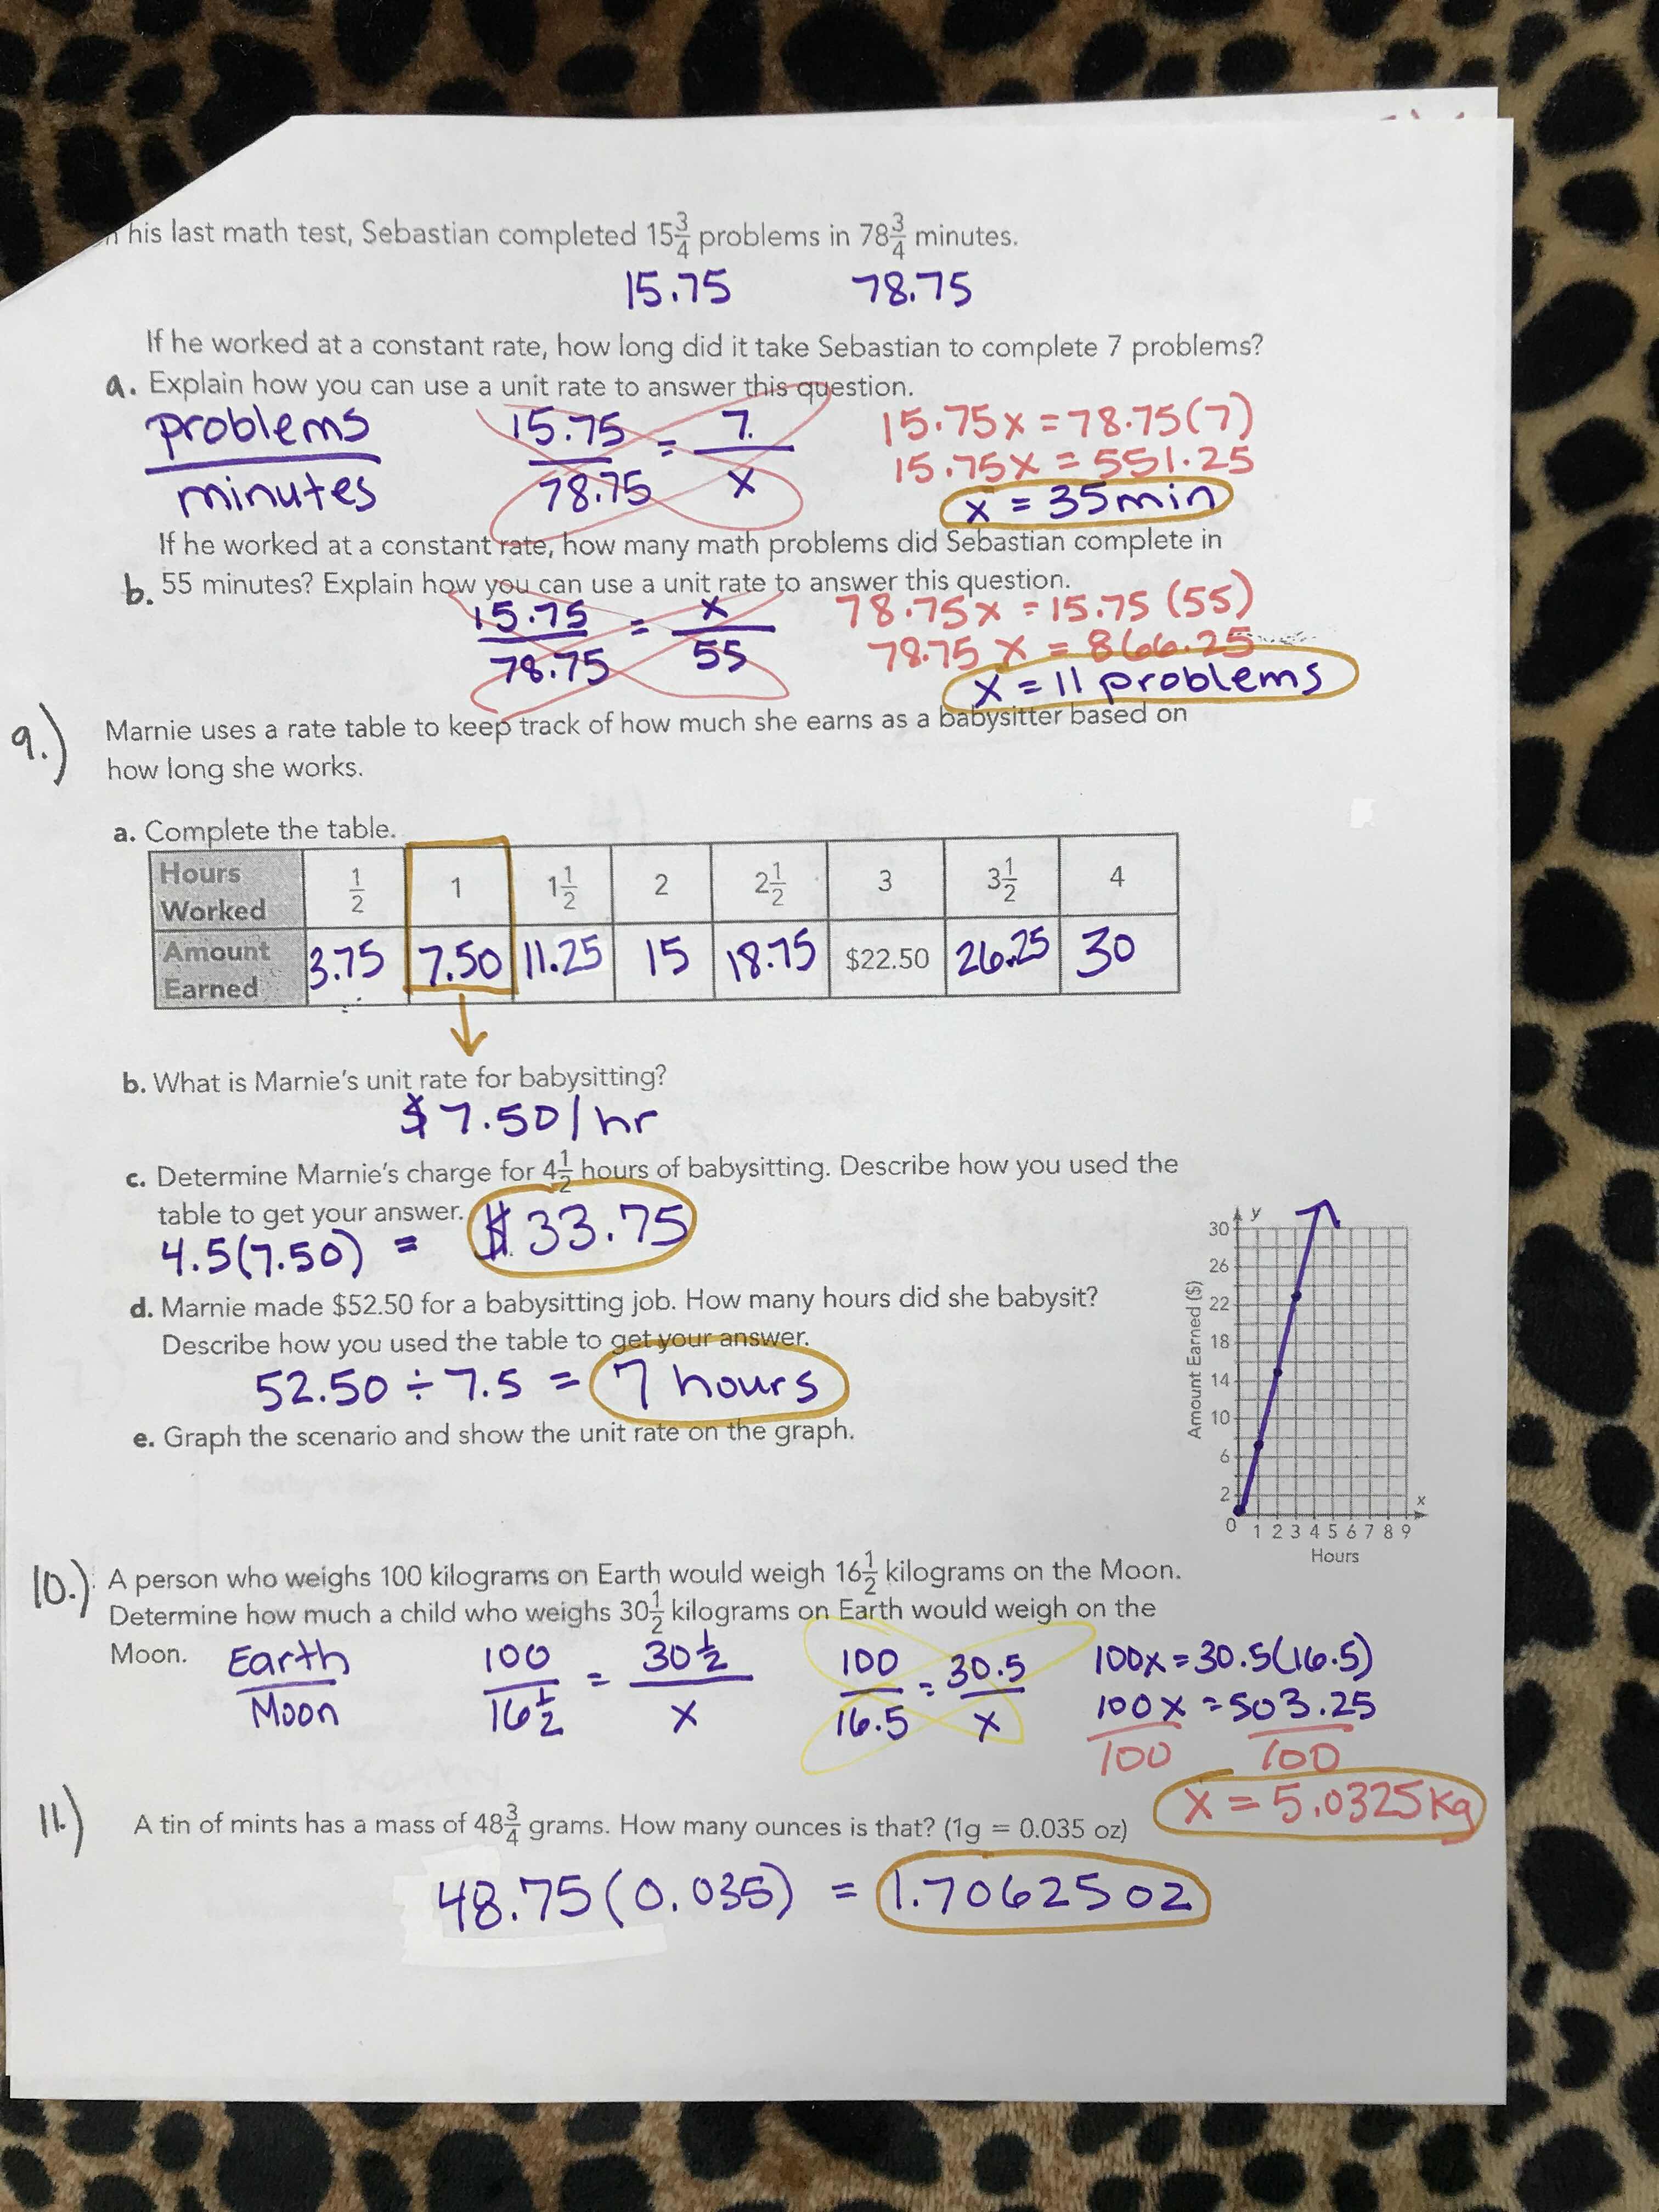 his last math test, Sebastian completed 15 3/4 problems in 78 3/4 minutes.
15.75 78.75
If he worked at a constant rate, how long did it take Sebastian to complete 7 problems?
a. Explain how you can use a unit rate to answer this question.
problems/minutes 15.75/78.75 = 7/x
15.75x = 78.75(7)
15.75x = 551.25
x = 35min
If he worked at a constant rate, how many math problems did Sebastian complete in
b. 55 minutes? Explain how you can use a unit rate to answer this question.
15.75/78.75 = x/55
78.75x = 15.75 (55)
78.75 x = 866.25
x = 11 problems
9.) Marnie uses a rate table to keep track of how much she earns as a babysitter based on
how long she works.
a. Complete the table.
Hours Worked 1/2 1 1 1/2 2 2 1/2 3 3 1/2 4
Amount Earned 3.75 7.50 11.25 15 18.75 $22.50 26.25 30
b. What is Marnie's unit rate for babysitting?
$7.50/hr
c. Determine Marnie's charge for 4 1/2 hours of babysitting. Describe how you used the
table to get your answer.
4.5(7.50) = $33.75
d. Marnie made $52.50 for a babysitting job. How many hours did she babysit?
Describe how you used the table to get your answer.
52.50 ÷ 7.5 = 7 hours
e. Graph the scenario and show the unit rate on the graph.
y
30
26
22
18
14
10
6
2
0 1 2 3 4 5 6 7 8 9 x
Amount Earned ($)
Hours
10.) A person who weighs 100 kilograms on Earth would weigh 16 1/2 kilograms on the Moon.
Determine how much a child who weighs 30 1/2 kilograms on Earth would weigh on the
Moon.
Earth/Moon 100/16 1/2 = 30 1/2/x 100/16.5 = 30.5/x
100x = 30.5(16.5)
100x = 503.25
100 100
x = 5.0325Kg
11.) A tin of mints has a mass of 48 3/4 grams. How many ounces is that? (1g = 0.035 oz)
48.75(0.035) = 1.70625 oz